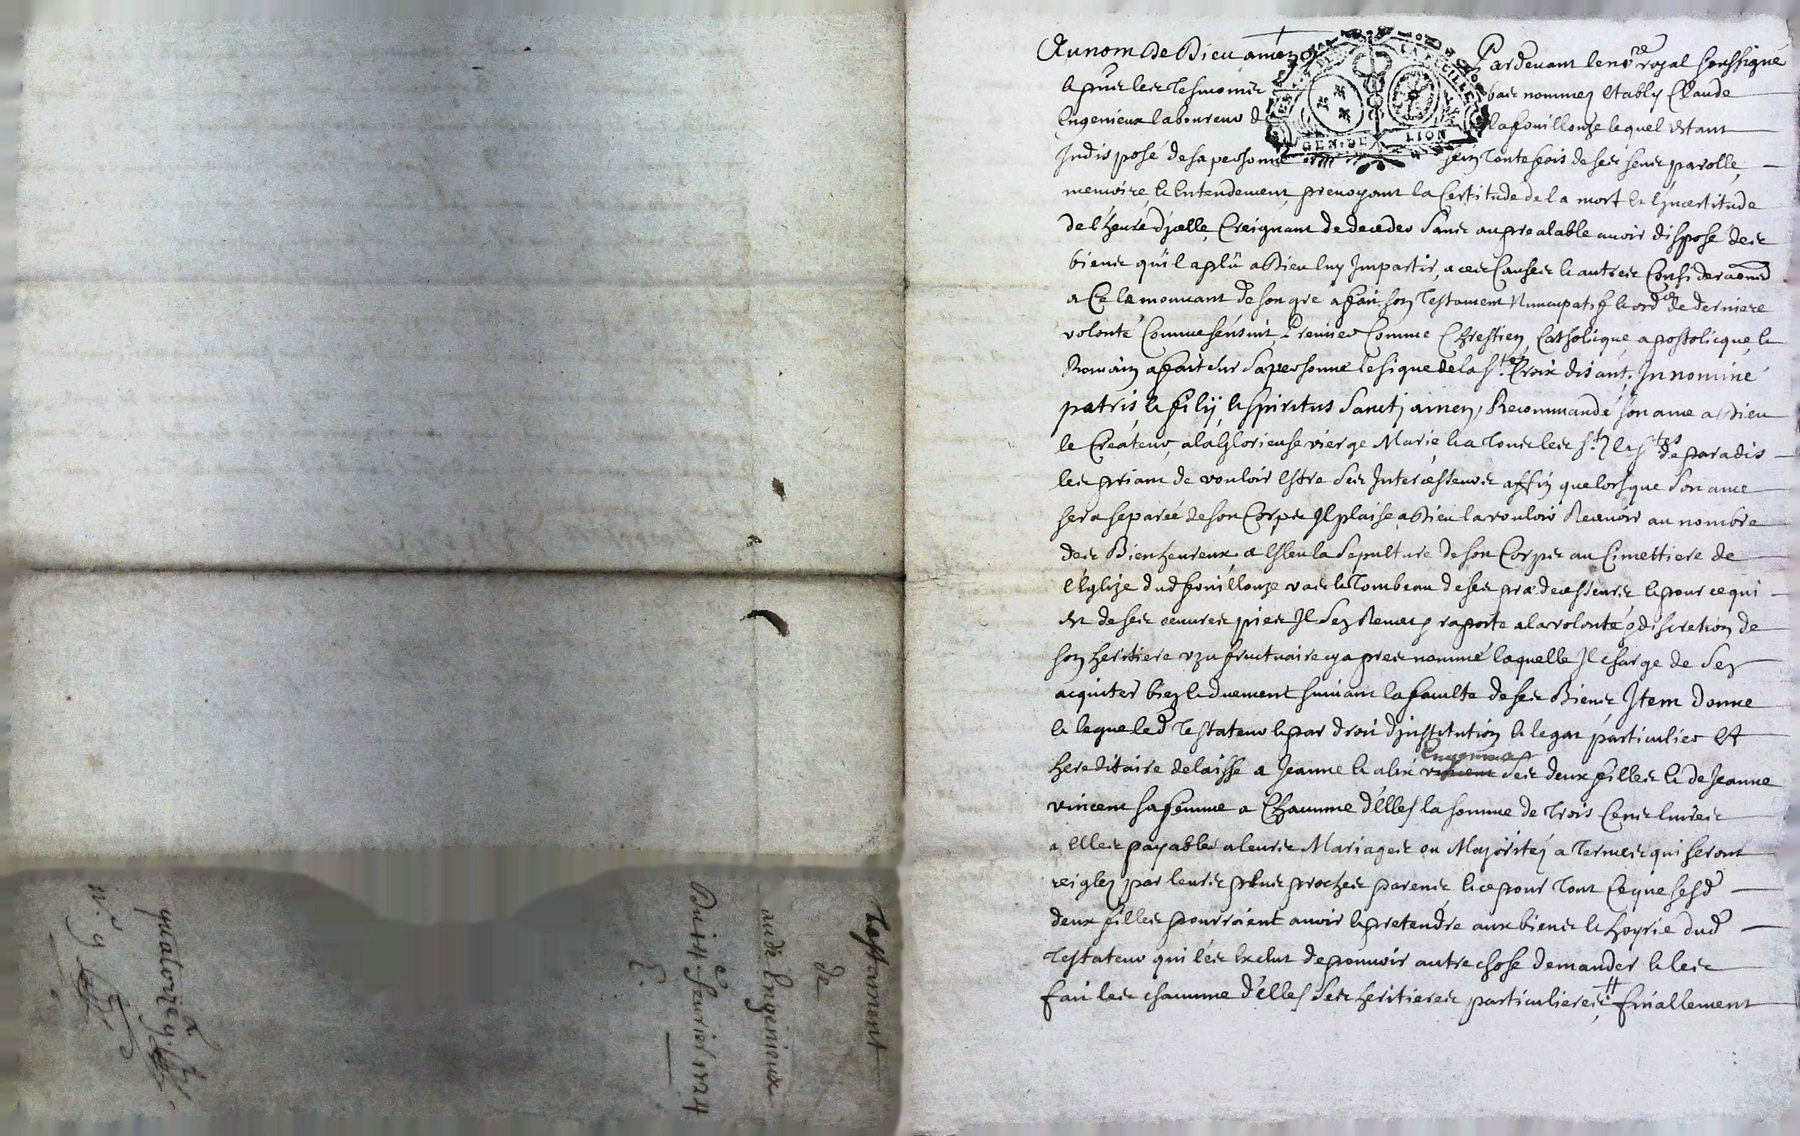 Testament
de
aude Ingenieux
Du 14e feurier 1724
E.
quatorzieme
n.° 9
Au nom de Dieu amen Pardeuant le no.re royal soussigné
& pnts les Tesmoins bas nommez estably Claude
Ingenieux laboureur d lafouillouze lequel estant
Indisposé de sa personne sain Toutesfois de ses sens parolle,
memoire & Entendement, preuoyant la Certitude de la mort & l'Jncertitude
de l'heure d'jcelle, Creignant de deceder sans au prealable auoir disposé des
biens qu'il a plû a Dieu luy Jmpartir, a ces Causes & autres Considera͠ons
a Ce le mouuant de son gré a fait son Testament Nuncupatif & ord.ce de derniere
volonté Comme sensuit, Premier Comme Chrestien, Catholicque, apostolicque, &
Romain a fait sur sa personne le signe de la S.te Croix disant, Jn nomine
patris, & filij, & spiritus Sancti amen, Recommandé son ame a Dieu
le Créateur, a la Glorieuse vierge Marie & a Tous les S.ts & S.tes de paradis
les priant de vouloir Estre ses Intercesseurs affin que lorsque son ame
sera separée de son Corps Jl plaise a Dieu la vouloir Receuoir au nombre
des Bienheureux, a Esleu la Sepulture de son Corps au Cimettiere de
l'Eglize dud fouillouze vas & Tombeau de ses prædecesseurs & pour ce qui
est de ses œuures pies Jl s'en Remet & raporte a la volonté & discretion de
son heritiere vzufructuaire cy apres nommé laquelle Jl charge de s'en
acquiter bien & duement suiuant la faculté de ses Biens Jtem donne
& legue led Testateur & par droit d'institution & legat particulier et
Ingenieux
hereditaire delaisse a Jeanne & alix vincent ses deux filles & de Jeanne
vincent sa femme a Chacune d'Elles la somme de Trois Cens liures
a Elles payables a leurs Mariages ou Majoritez a Termes qui seront
reiglez par leurs plus proches parens & ce pour Tout Ce que sesd
deux filles pourroient auoir & pretendre aux biens & hoyrie dud
Testateur qui les Exclut de pouuoir autre chose demander & les
fait les chacune d'elles ses heritieres particulieres, # finallement
GEN. DE LION